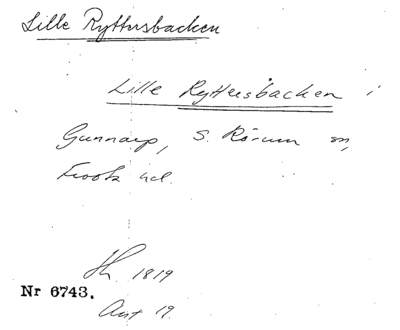 Lille Ryttersbacken
Lille Ryttersbacken i
Gunnarp, S. Rörum m,
Frosta hd.
Sk. 1819
Nr 6743.
Avs 19.